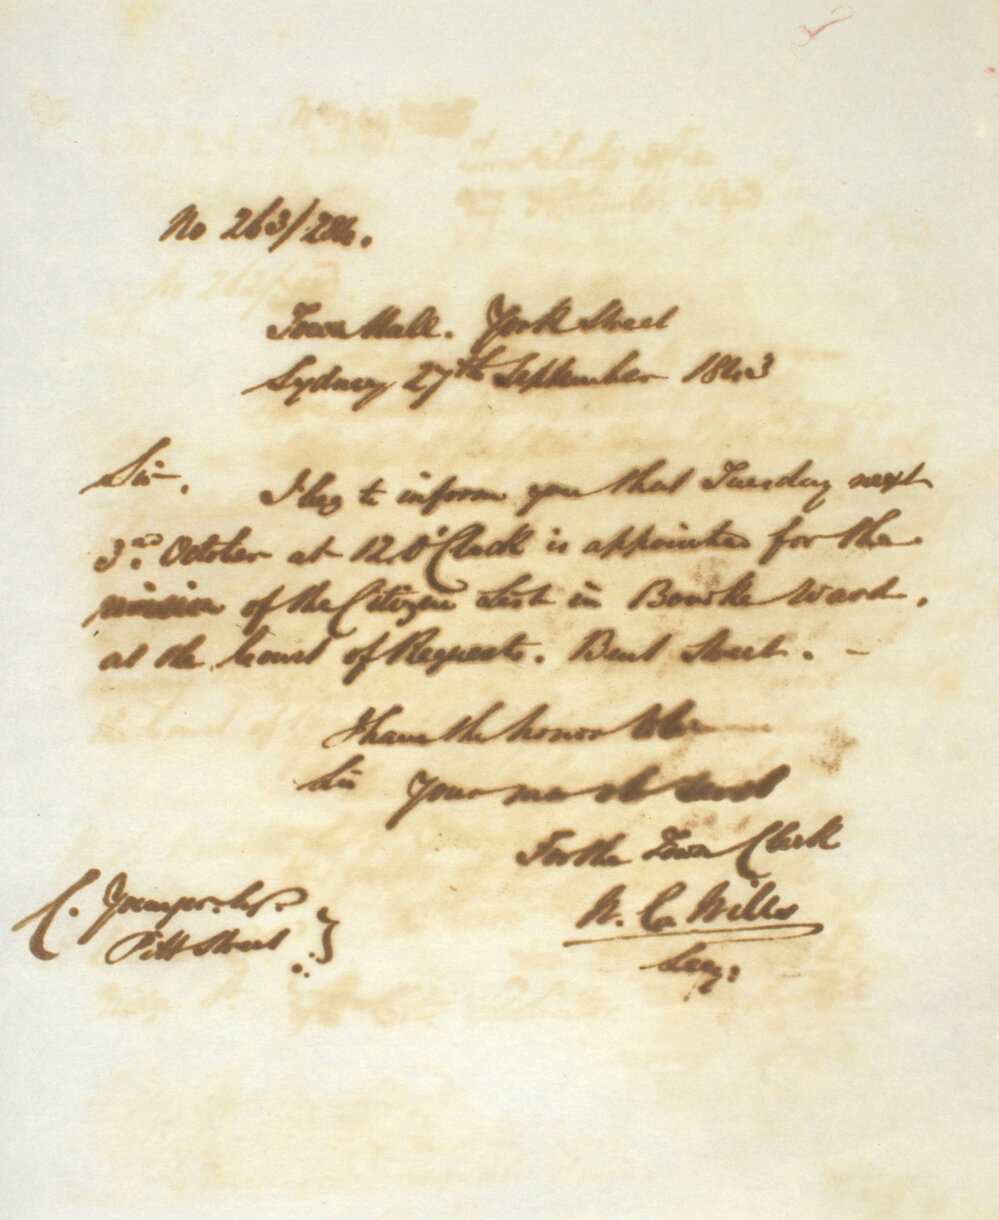 No 263/286.
Town Hall. York Street
Sydney 27th September 1843
Sir. I beg to inform you that Tuesday next
3rd. October at 12 O'Clock is appointed for the
revision of the Citizen List in Bourke Ward,
at the Court of Requests. Bent Street. -
I have the honor to be
Sir Your most obt servt
For the Town Clerk
W. C. Wills
C.
Pitt Street